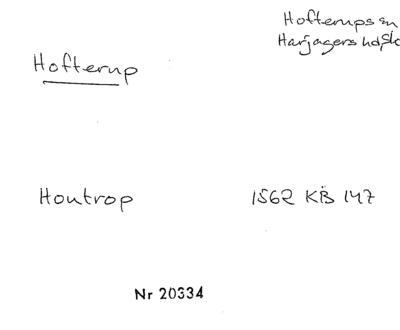 Hofterups sn
Harjagers hd, Sk
Hofterup
Houtrop 1562 KB 147
Nr 20334